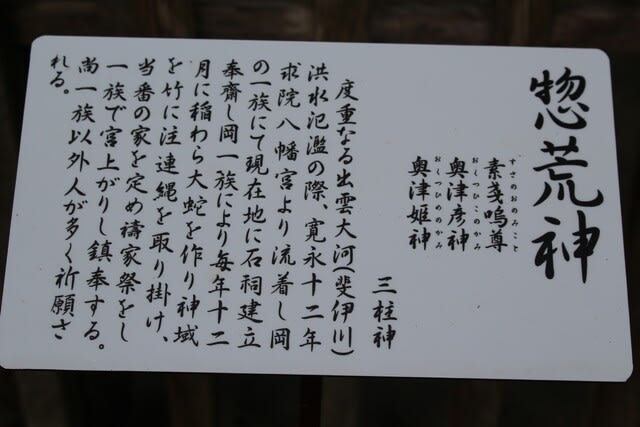 惣荒神
素戔嗚尊
すさのおのみこと
奥津彦神
おくつひこのかみ
奥津姫神
おくつひめのかみ
三柱神
度重なる出雲大河(斐伊川)
洪水氾濫の際、寛永十二年
求院八幡宮より流着し岡
の一族にて現在地に石祠建立
奉齋し岡一族により毎年十二
月に稲わら大蛇を作り神域
を竹に注連縄を取り掛け、
当番の家を定め祷家祭をし
一族で宮上がりし鎮奉する。
尚一族以外人が多く祈願さ
れる。